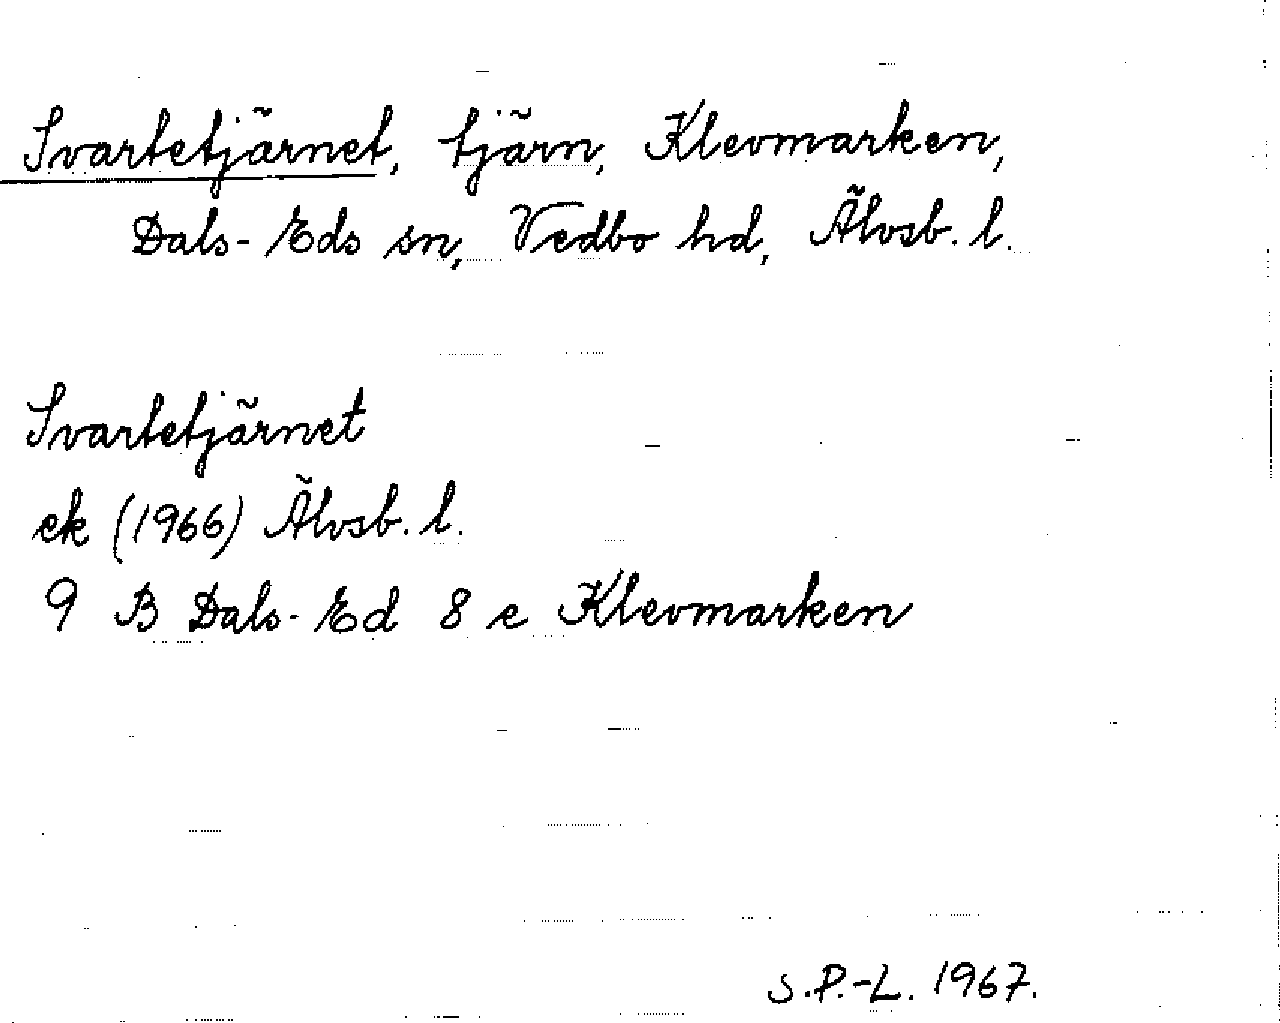 Svartetjärnet, tjärn, Klevmarken,
Dals-Eds sn, Vedbo hd, Älvsb. l.
Svartetjärnet
ek (1966) Älvsb. l.
9 B Dals-Ed 8 e Klevmarken
S.P.-L. 1967.